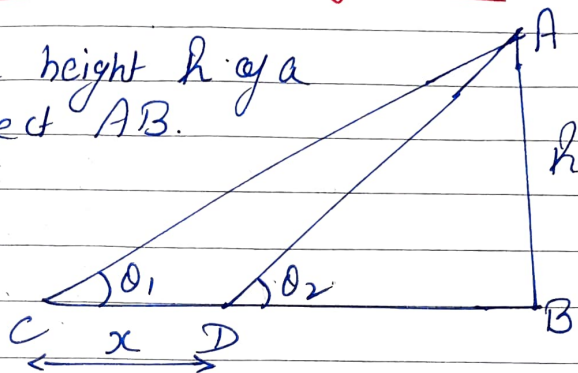 height h of a
ect AB.
A
h
θ1
θ2
C
x
D
B